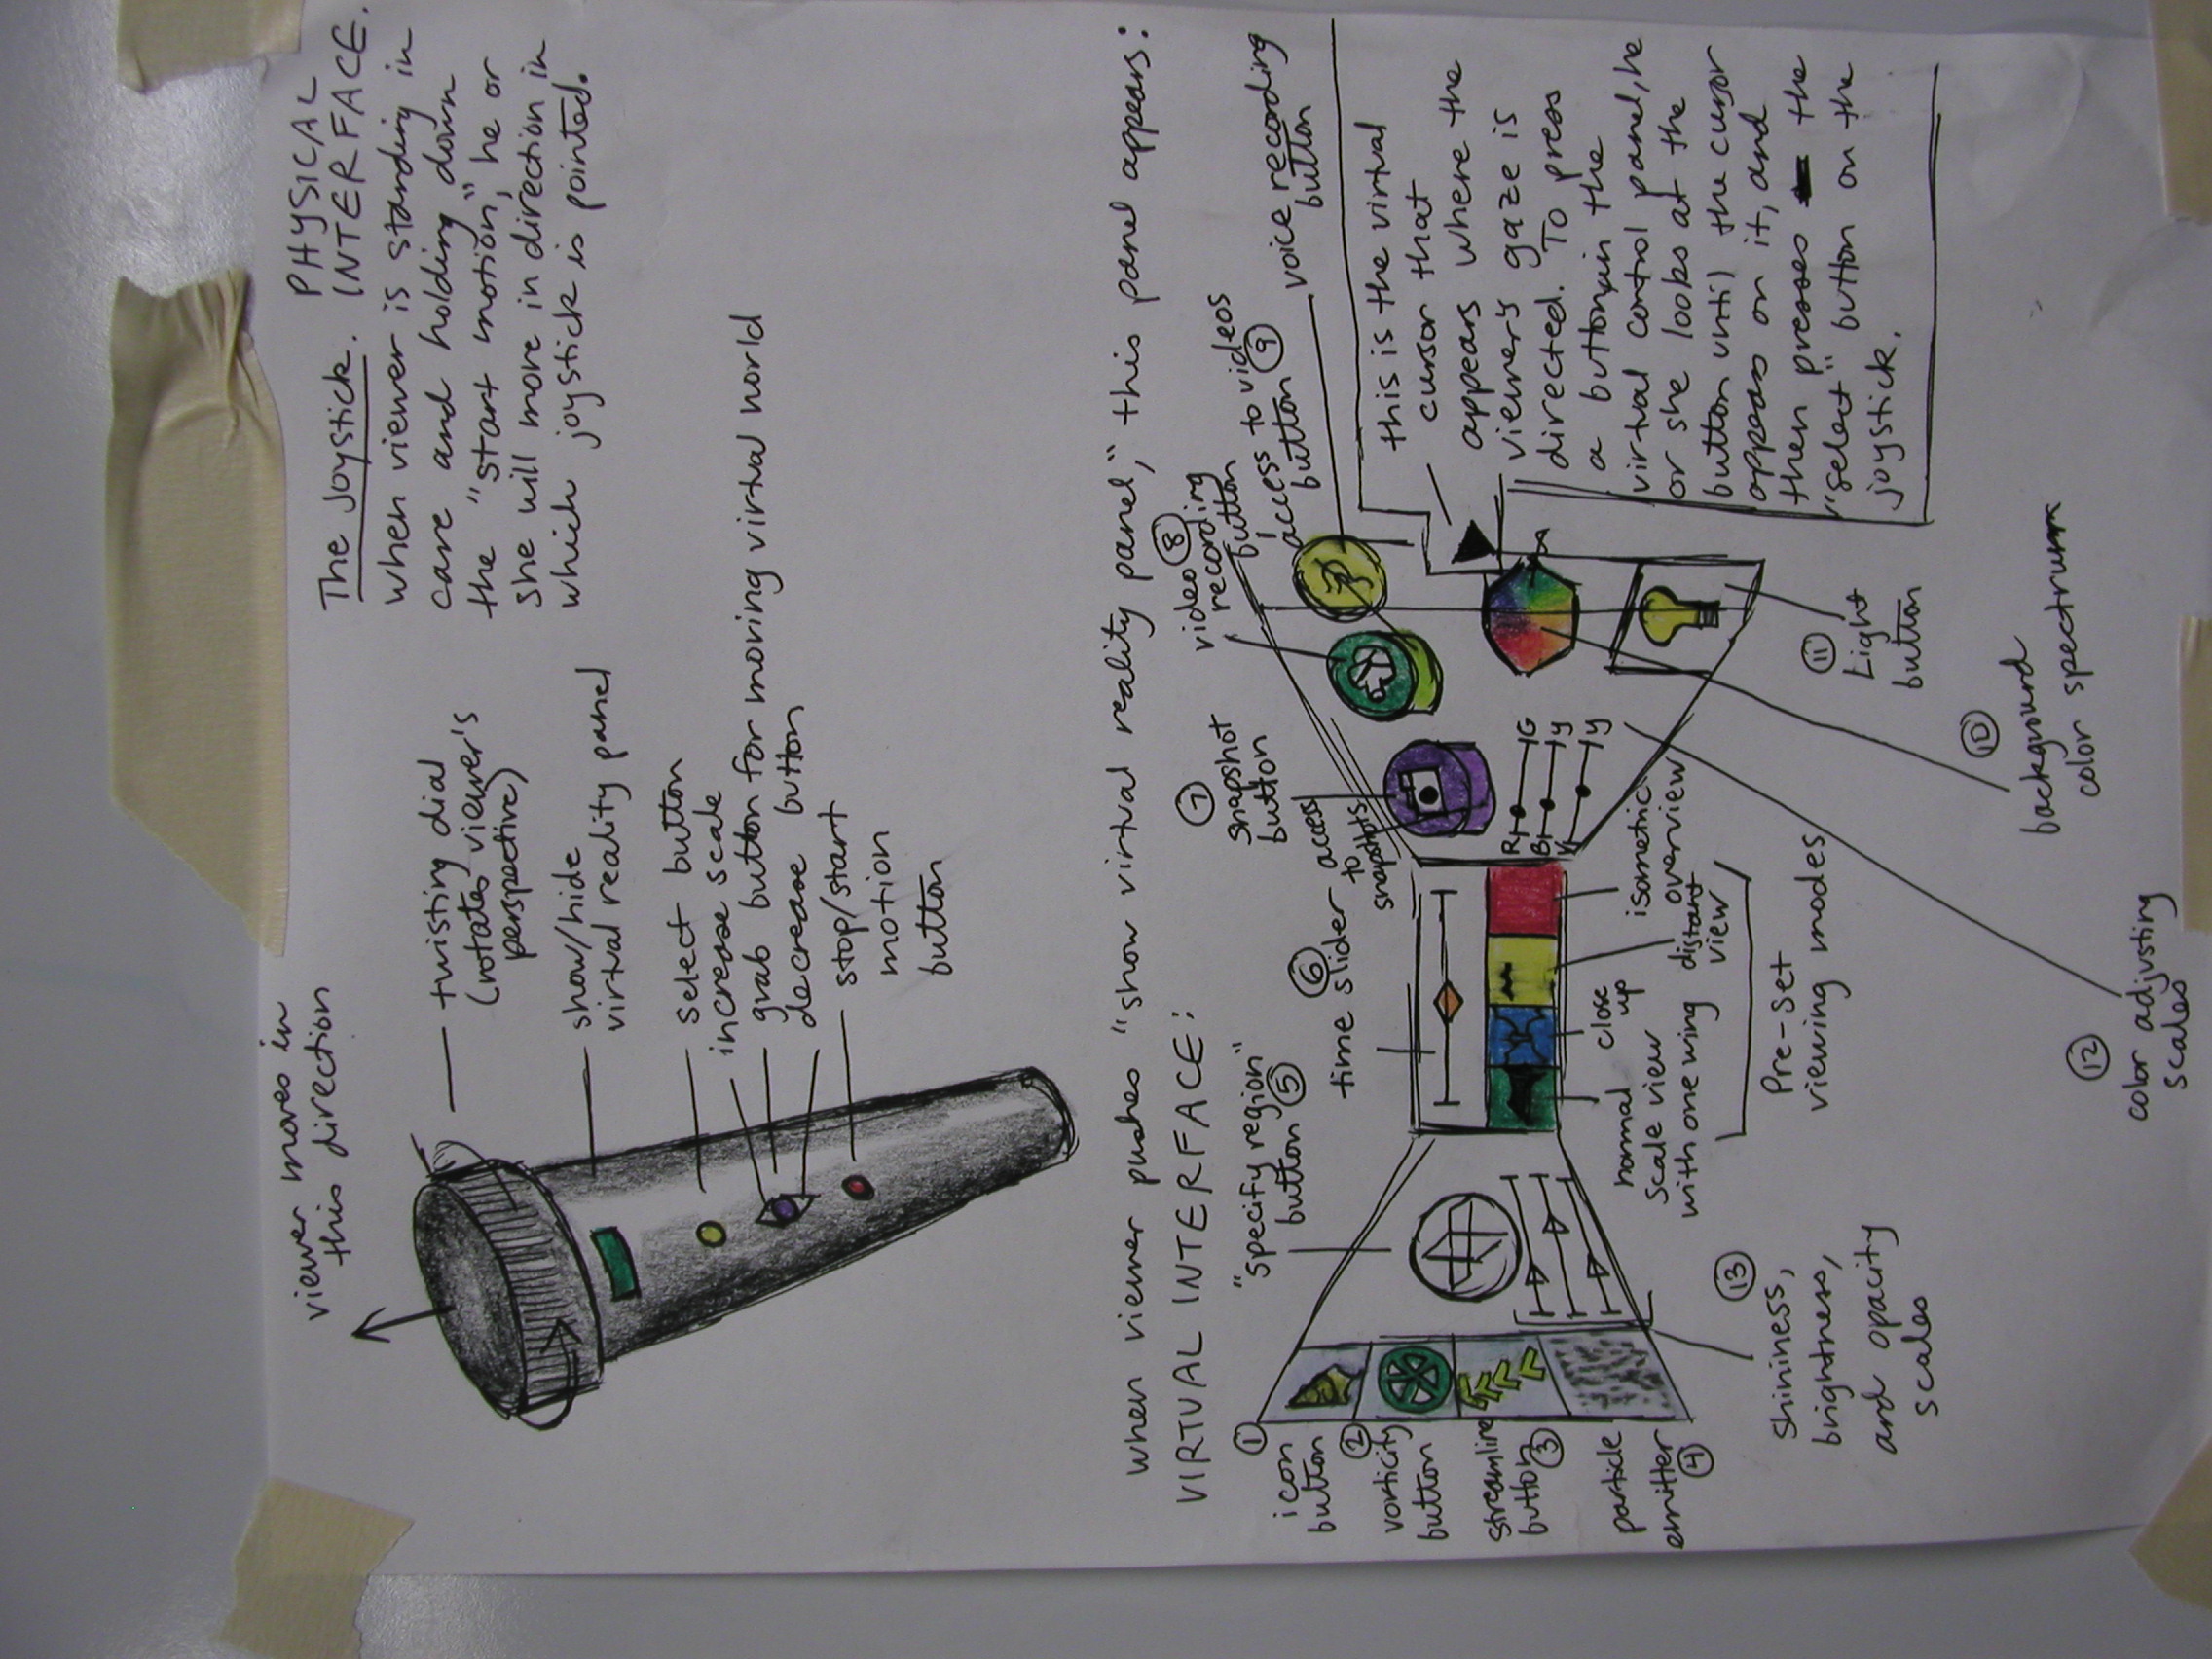 PHYSICAL
INTERFACE.
The Joystick.
When viewer is standing in
cave and holding down
the "start motion," he or
she will move in direction in
which joystick is pointed.
viewer moves in
this direction
twisting dial
(rotates viewer's
perspective)
show/hide
virtual reality panel
select button
increase scale
grab button for moving virtual world
decrease button
stop/start
motion
button
When viewer pushes "show virtual reality panel," this panel appears:
VIRTUAL INTERFACE:
①
icon
button
②
vorticity
button
streamline
button ③
particle
emitter
④
"specify region"
button ⑤
⑥
time slider
⑦
snapshot
button
access
to
snapshots
video ⑧
recording
button
access to videos
button ⑨
voice recording
button
R G
B Y
Y
this is the virtual
cursor that
appears where the
viewer's gaze is
directed. To press
a button in the
virtual control panel, he
or she looks at the
button until the cursor
appears on it, and
then presses the
"select" button on the
joystick.
⑪
Light
button
⑩
background
color spectrum
⑫
color adjusting
scales
isometric
overview
distant
view
close
up
normal
scale view
with one wing
Pre-set
viewing modes
⑬
shininess,
brightness,
and opacity
scales